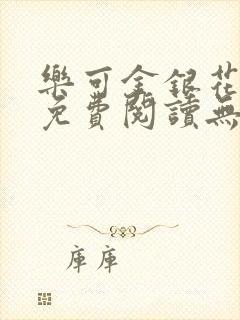 樂可金銀花
免費閱讀無
庫庫